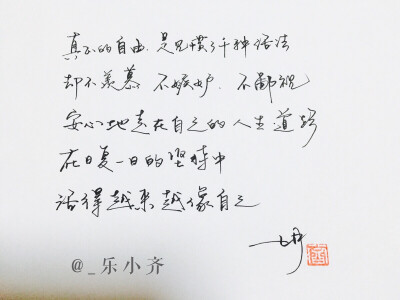 真正的自由,是见惯了千种活法
却不羡慕、不嫉妒、不鄙视
安心地走在自己的人生道路
在日复一日的坚持中
活得越来越像自己
@_乐小齐